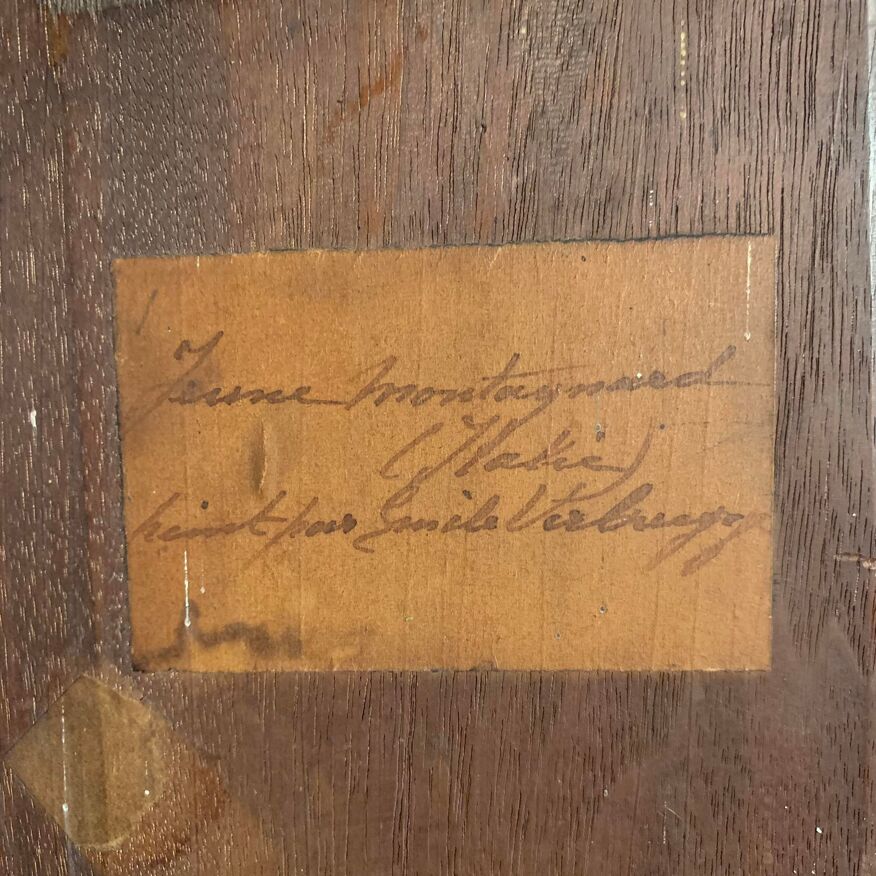 Jeune montagnard
(Italie)
peint par Emile Verbrugge